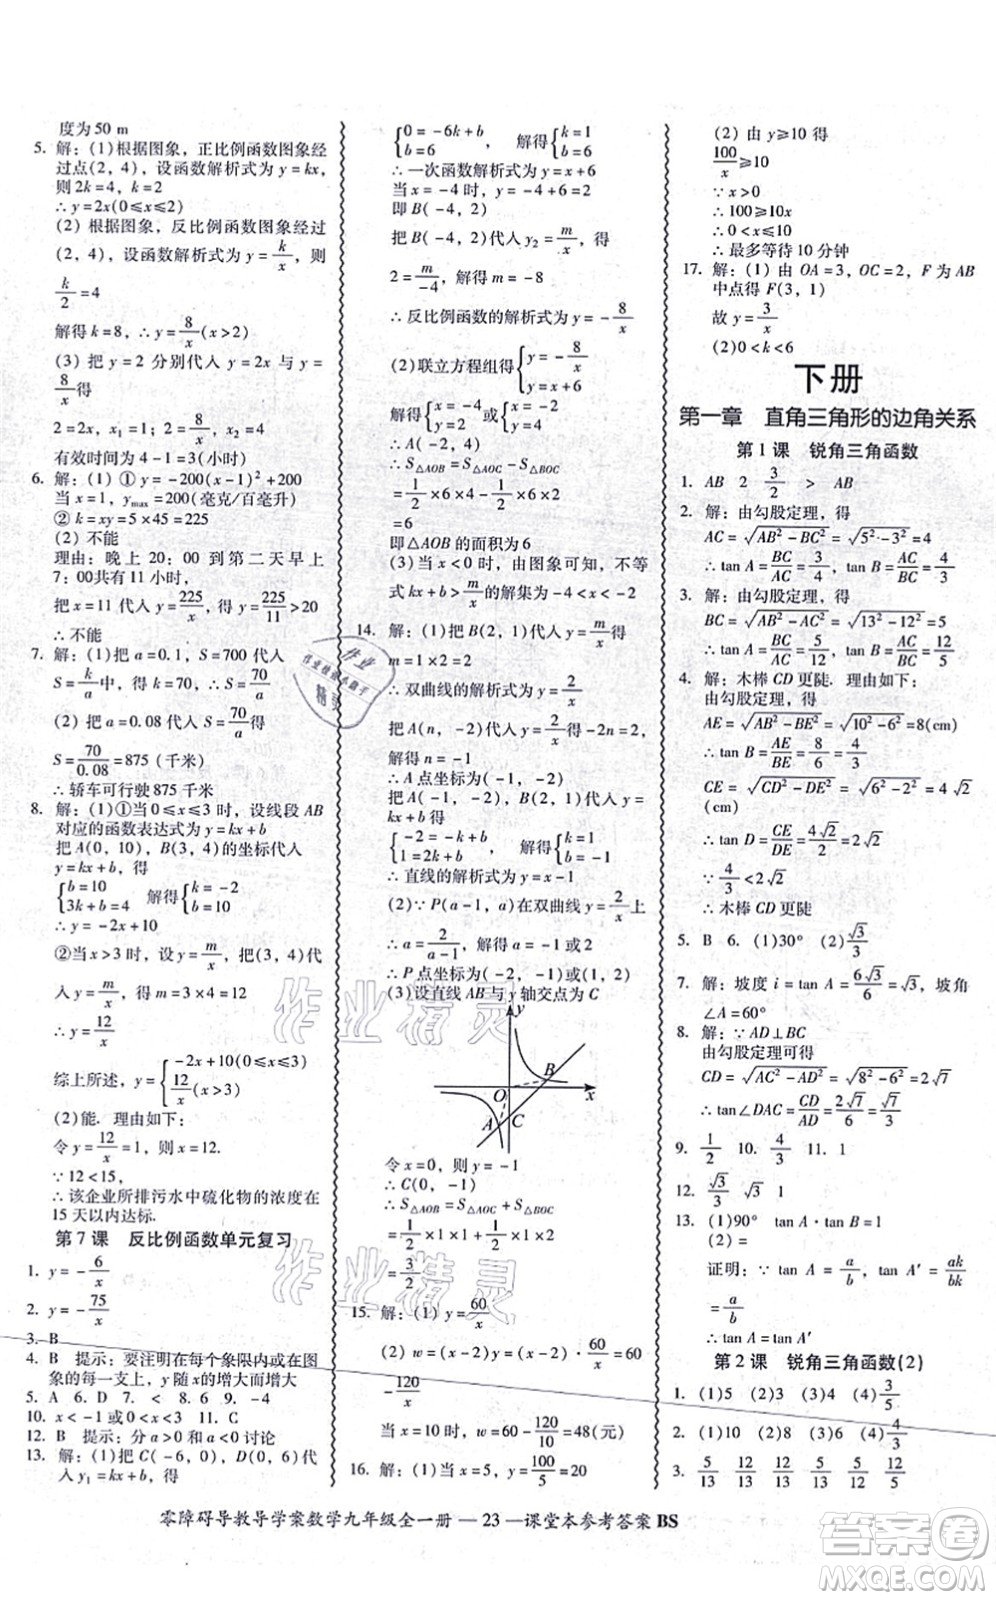 度为 50 m
5. 解:(1)根据图象,正比例函数图象经
过点(2,4),设函数解析式为 y=kx,
则 2k=4,k=2
∴y=2x(0≤x≤2)
(2)根据图象,反比例函数图象经过
(2,4),设函数解析式为 y=k/x,则
k/2=4
解得 k=8,∴y=8/x(x>2)
(3)把 y=2 分别代入 y=2x 与 y=
8/x得
2=2x,x₁=1;2=8/x,x₂=4
有效时间为 4-1=3(小时)
6. 解:(1)①y=-200(x-1)²+200
当 x=1,y_max=200(毫克/百毫升)
②k=xy=5×45=225
(2)不能
理由:晚上 20:00 到第二天早上
7:00共有 11 小时,
把 x=11 代入 y=225/x,得 y=225/11>20
∴不能
7. 解:(1)把 a=0.1,S=700 代入
S=k/a中,得 k=70,∴S=70/a
(2)把 a=0.08 代入 S=70/a得
S=70/0.08=875(千米)
∴轿车可行驶 875 千米
8. 解:(1)①当 0≤x≤3 时,设线段 AB
对应的函数表达式为 y=kx+b
把 A(0,10),B(3,4)的坐标代入
y=kx+b,得
{b=10 3k+b=4 解得{k=-2 b=10
∴y=-2x+10
②当 x>3 时,设 y=m/x,把(3,4)代
入 y=m/x,得 m=3×4=12
∴y=12/x
综上所述,y={-2x+10(0≤x≤3) 12/x(x>3)
(2)能. 理由如下:
令 y=12/x=1,则 x=12.
∵12<15,
∴该企业所排污水中硫化物的浓度在
15 天以内达标.
第 7 课 反比例函数单元复习
1. y=-6/x
2. y=-75/x
3. B
4. B 提示:要注明在每个象限内或在图
象的每一支上,y 随 x 的增大而增大
5. A 6. D 7. < 8. 6 9. -4
10. x<-1 或 0<x<3 11. C
12. B 提示:分 a>0 和 a<0 讨论
13. 解:(1)把 C(-6,0),D(0,6)代
入 y₁=kx+b,得
{0=-6k+b b=6 解得{k=1 b=6
∴一次函数解析式为 y=x+6
当 x=-4 时,y=2
即 B(-4,2)
把 B(-4,2)代入 y₂=m/x,得
2=m/-4,解得 m=-8
∴反比例函数的解析式为 y=-8/x
(2)联立方程组得{y=-8/x y=x+6
解得{x=-4 y=2或{x=-2 y=4
∴A(-2,4)
∴S△AOB=S△AOC-S△BOC
=1/2×6×4-1/2×6×2
=6
即△AOB 的面积为 6
(3)当 x<0 时,由图象可知,不等
式 kx+b>m/x的解集为-4<x<-2
14. 解:(1)把 B(2,1)代入 y=m/x得
m=1×2=2
∴双曲线的解析式为 y=2/x
把 A(n,-2)代入 y=2/x得-2n=2,
解得 n=-1
∴A 点坐标为(-1,-2)
把 A(-1,-2),B(2,1)代入 y=
kx+b得
{-2=-k+b 1=2k+b,解得{k=1 b=-1
∴直线的解析式为 y=x-1
(2)∵P(a-1,a)在双曲线 y=2/x上
∴a=2/a-1,解得 a=-1或 2
∴P 点坐标为(-2,-1)或(1,2)
(3)设直线 AB与 y 轴交点为 C
y
B
O
x
A
C
令 x=0,则 y=-1
∴C(0,-1)
∴S△AOB=S△AOC+S△BOC
=1/2×1×1+1/2×1×2
=3/2
15. 解:(1)y=60/x
(2)w=(x-2)·y=(x-2)·60/x=60
-120/x
当 x=10 时,w=60-120/10=48(元)
16. 解:(1)当 x=5,y=100/5=20
(2)由 y≥10 得
100/x≥10
∵x>0
∴100≥10x
∴0<x≤10
∴最多等待 10 分钟
17. 解:(1)由 OA=3,OC=2,F 为 AB
中点得 F(3,1)
故 y=3/x
(2)0<k<6
下册
第一章 直角三角形的边角关系
第 1 课 锐角三角函数
1. AB 2 3/2 > AB
2. 解:由勾股定理,得
AC=√AB²-BC²=√5²-3²=4
∴tan A=BC/AC=3/4,tan B=AC/BC=4/3
3. 解:由勾股定理,得
BC=√AB²-AC²=√13²-12²=5
∴tan A=BC/AC=5/12,tan B=AC/BC=12/5
4. 解:木棒 CD 更陡. 理由如下:
由勾股定理,得
AE=√AB²-BE²=√10²-6²=8(cm)
∴tan B=AE/BE=8/6=4/3
CE=√CD²-DE²=√6²-2²=4√2
(cm)
∴tan D=CE/DE=4√2/2=2√2
∵4/3<2√2
∴木棒 CD 更陡
5. B 6. (1)30° (2)√3/3
7. 解:坡度 i=tan A=6√3/6=√3,坡角
∠A=60°
8. 解:∵AD⊥BC
由勾股定理可得
CD=√AC²-AD²=√8²-6²=2√7
∴tan∠DAC=CD/AD=2√7/6=√7/3
9. 1/2 10. 4/3 11. 1
12. √3/3 √3 1
13. (1)90° tan A·tan B=1
(2)=
证明:∵tan A=a/b,tan A′=ak/bk
=a/b
∴tan A=tan A′
第 2 课 锐角三角函数(2)
1. (1)5 (2)3 (3)4 (4)3/5
2. (1)10 (2)8 (3)6 (4)4/3
3. 5/13 12/13 5/12 12/13 5/13 12/5
零障碍导教导学案数学九年级全一册 — 23 —课堂本参考答案 BS
作业精灵
作业精灵
作业帮
MXQE.COM